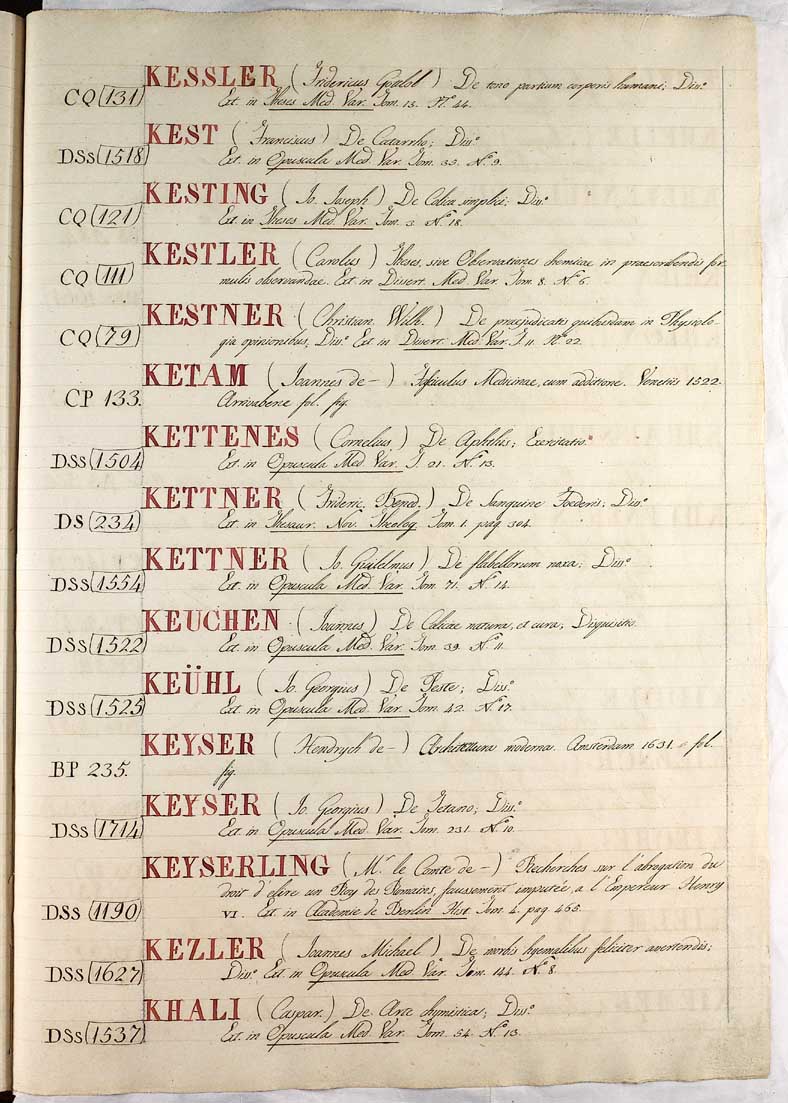 KESSLER (Fridericus Gottlob) De tono partium corporis humani; Diss.º
CQ 131 Ext. in Theses Med. Var. Tom. 15. Nº. 44.
KEST (Franciscus) De Catarrho; Diss.º
DSs 1518 Ext. in Opuscula Med. Var. Tom. 35. Nº. 9.
KESTING (Jo. Joseph) De Colica simplici; Diss.º
CQ 121 Ext. in Theses Med. Var. Tom. 3. Nº. 18.
KESTLER (Carolus) Theses, sive Observationes chemicae in praescribendis for
CQ 111 mulis observandae. Ext. in Dissert. Med. Var. Tom. 8. Nº. 6.
KESTNER (Christian. Wilh.) De praejudicatis quibusdam in Physiolo-
CQ 79 gia opinionibus, Diss.º Ext. in Dissert. Med. Var. T. 11. Nº. 22.
KETAM (Joannes de-) Fasciculus Medicinae, cum additione. Venetiis 1522.
CP 133. Arrivabene fol. fig.
KETTENES (Cornelius) De Aphthis; Exercitatio.
DSs 1504 Ext. in Opuscula Med. Var. T. 21. Nº. 13.
KETTNER (Frideric. Bened.) De Sanguine Foederis; Diss.º
DS 234 Ext. in Thesaur. Nov. Theolog. Tom. 1. pag. 304.
KETTNER (Jo. Guilelmus) De flabellorum noxa; Diss.º
DSs 1554 Ext. in Opuscula Med. Var. Tom. 71. Nº. 14.
KEUCHEN (Joannes) De Colicae natura, et cura; Disquisitio.
DSs 1522 Ext. in Opuscula Med. Var. Tom. 39. Nº. 11.
KEÜHL (Jo. Georgius) De Peste; Diss.º
DSs 1525 Ext. in Opuscula Med. Var. Tom. 42. Nº. 17.
KEYSER (Hendrych de-) Architettura moderna. Amsterdam 1631. fol.
BP 235. fig.
KEYSER (Jo. Georgius) De Tetano; Diss.º
DSs 1714 Ext. in Opuscula Med. Var. Tom. 231. Nº. 10.
KEYSERLING (Mr. le Comte de-) Recherches sur l'abrogation du
droit d'elire un Roy des Romains, faussement imputée a l'Empereur Henry
DSs 1190 VI. Ext. in Academie de Berlin Hist. Tom. 4. pag. 465.
KEZLER (Joannes Michael) De morbis hyemalibus feliciter avertendis;
DSs 1627 Diss.º Ext. in Opuscula Med. Var. Tom. 144. Nº. 8.
KHALI (Caspar.) De Arte chymistica; Diss.º
DSs 1537 Ext. in Opuscula Med. Var. Tom. 54. Nº. 13.